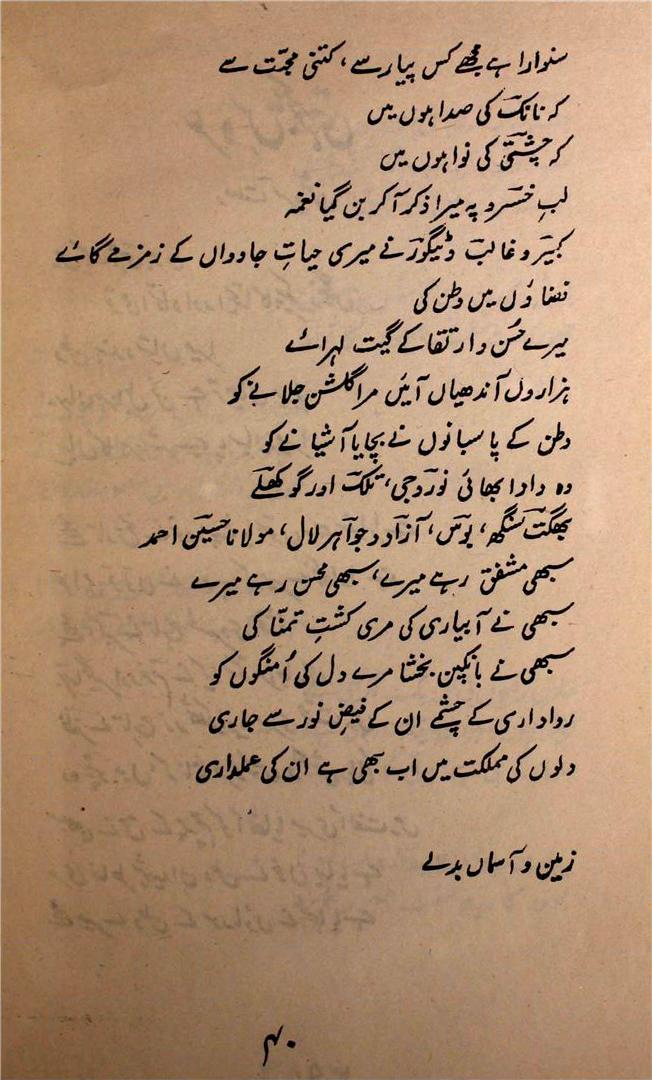 سنوارا ہے مجھے کس پیار سے، کتنی محبّت سے
کہ نانک کی صدا ہوں میں
کہ چشتی کی نوا ہوں میں
لبِ خسرو پہ میرا ذکر آکر بن گیا نغمہ
کبیر و غالب و ٹیگور نے میری حیاتِ جاوداں کے زمزمے گائے
فضاؤں میں وطن کی
میرے حُسن و ارتقا کے گیت لہرائے
ہزاروں آندھیاں آئیں مرا گلشن جلانے کو
وطن کے پاسبانوں نے بچایا آشیانے کو
وہ دادا بھائی نوروجی، تلک اور گوکھلے
بھگت سنگھ، بوس، آزاد و جواہر لال، مولانا حسین احمد
سبھی مشفق رہے میرے، سبھی محسن رہے میرے
سبھی نے آبیاری کی مری کشتِ تمنّا کی
سبھی نے بانکپن بخشا مرے دل کی اُمنگوں کو
رواداری کے چشمے ان کے فیضِ نور سے جاری
دلوں کی مملکت میں اب بھی ہے ان کی عملداری
زمین و آسماں بدلے
۴۰